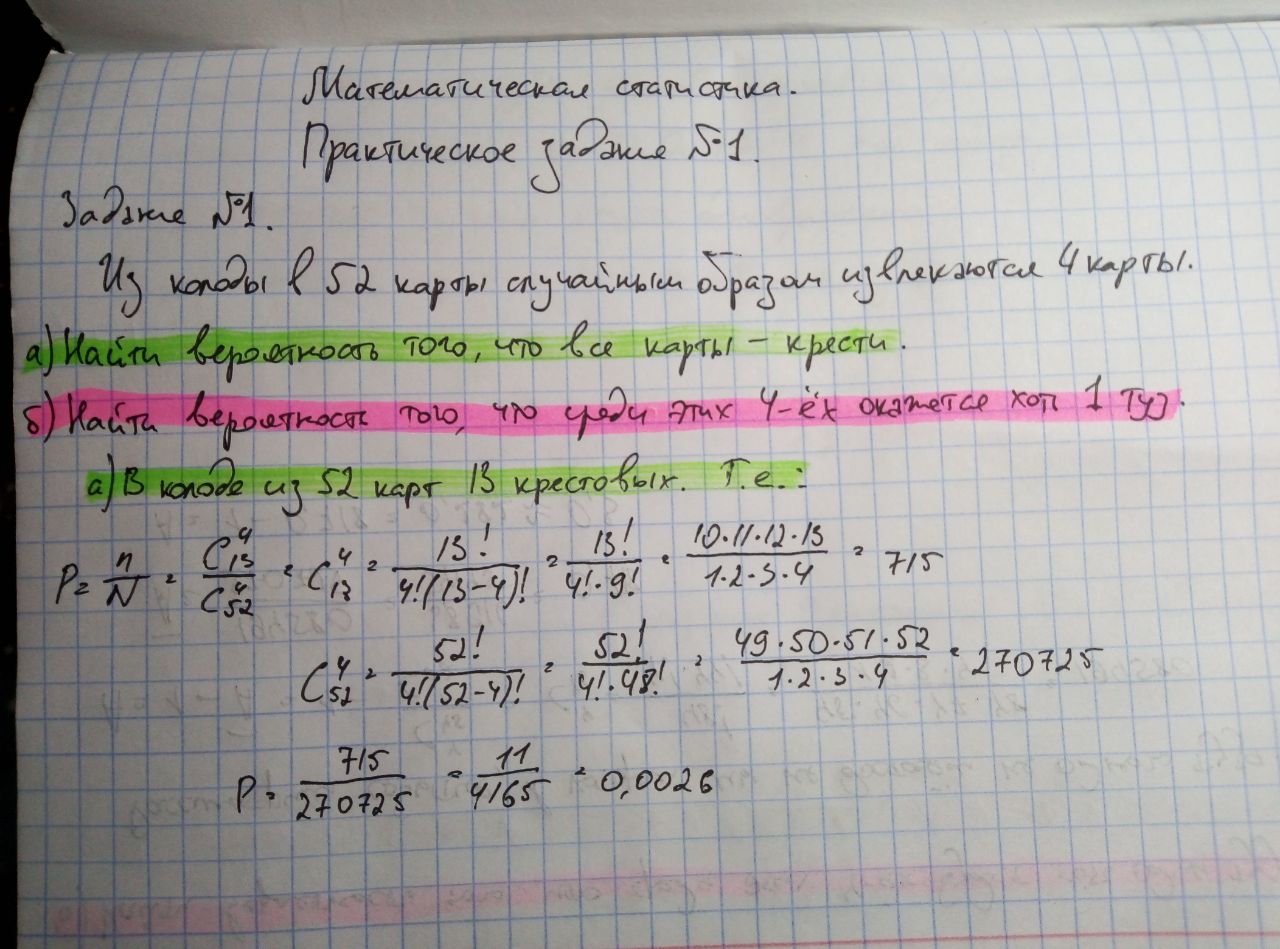 Математическая статистика.
Практическое задание №1.
Задание №1.
Из колоды в 52 карты случайным образом извлекаются 4 карты.
а) Найти вероятность того, что все карты – крести.
б) Найти вероятность того, что среди этих 4-ёх окажется хоть 1 туз.
а) В колоде из 52 карт 13 крестовых. Т.е.:
P = n/N = C⁴₁₃/C⁴₅₂ = C⁴₁₃ = 13!/4!(13-4)! = 13!/4!·9! = 10·11·12·13/1·2·3·4 = 715
C⁴₅₂ = 52!/4!(52-4)! = 52!/4!·48! = 49·50·51·52/1·2·3·4 = 270725
P = 715/270725 = 11/4165 = 0,0026